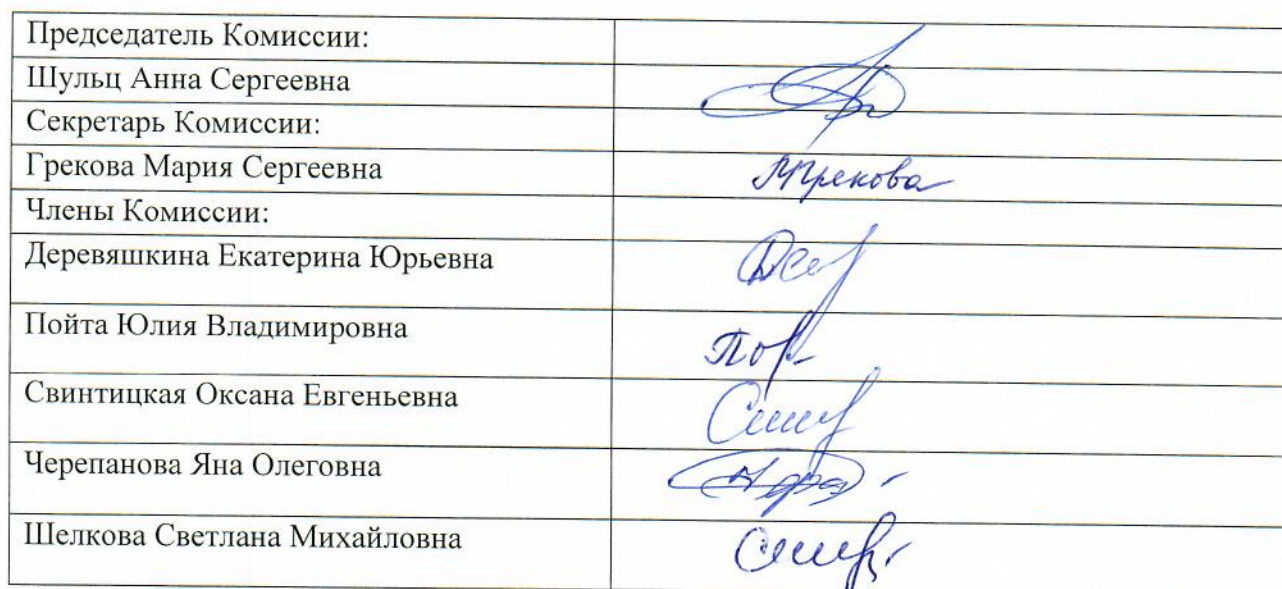 Председатель Комиссии:
Шульц Анна Сергеевна
Секретарь Комиссии:
Грекова Мария Сергеевна
МГрекова
Члены Комиссии:
Деревяшкина Екатерина Юрьевна
Пойта Юлия Владимировна
Свинтицкая Оксана Евгеньевна
Черепанова Яна Олеговна
Шелкова Светлана Михайловна